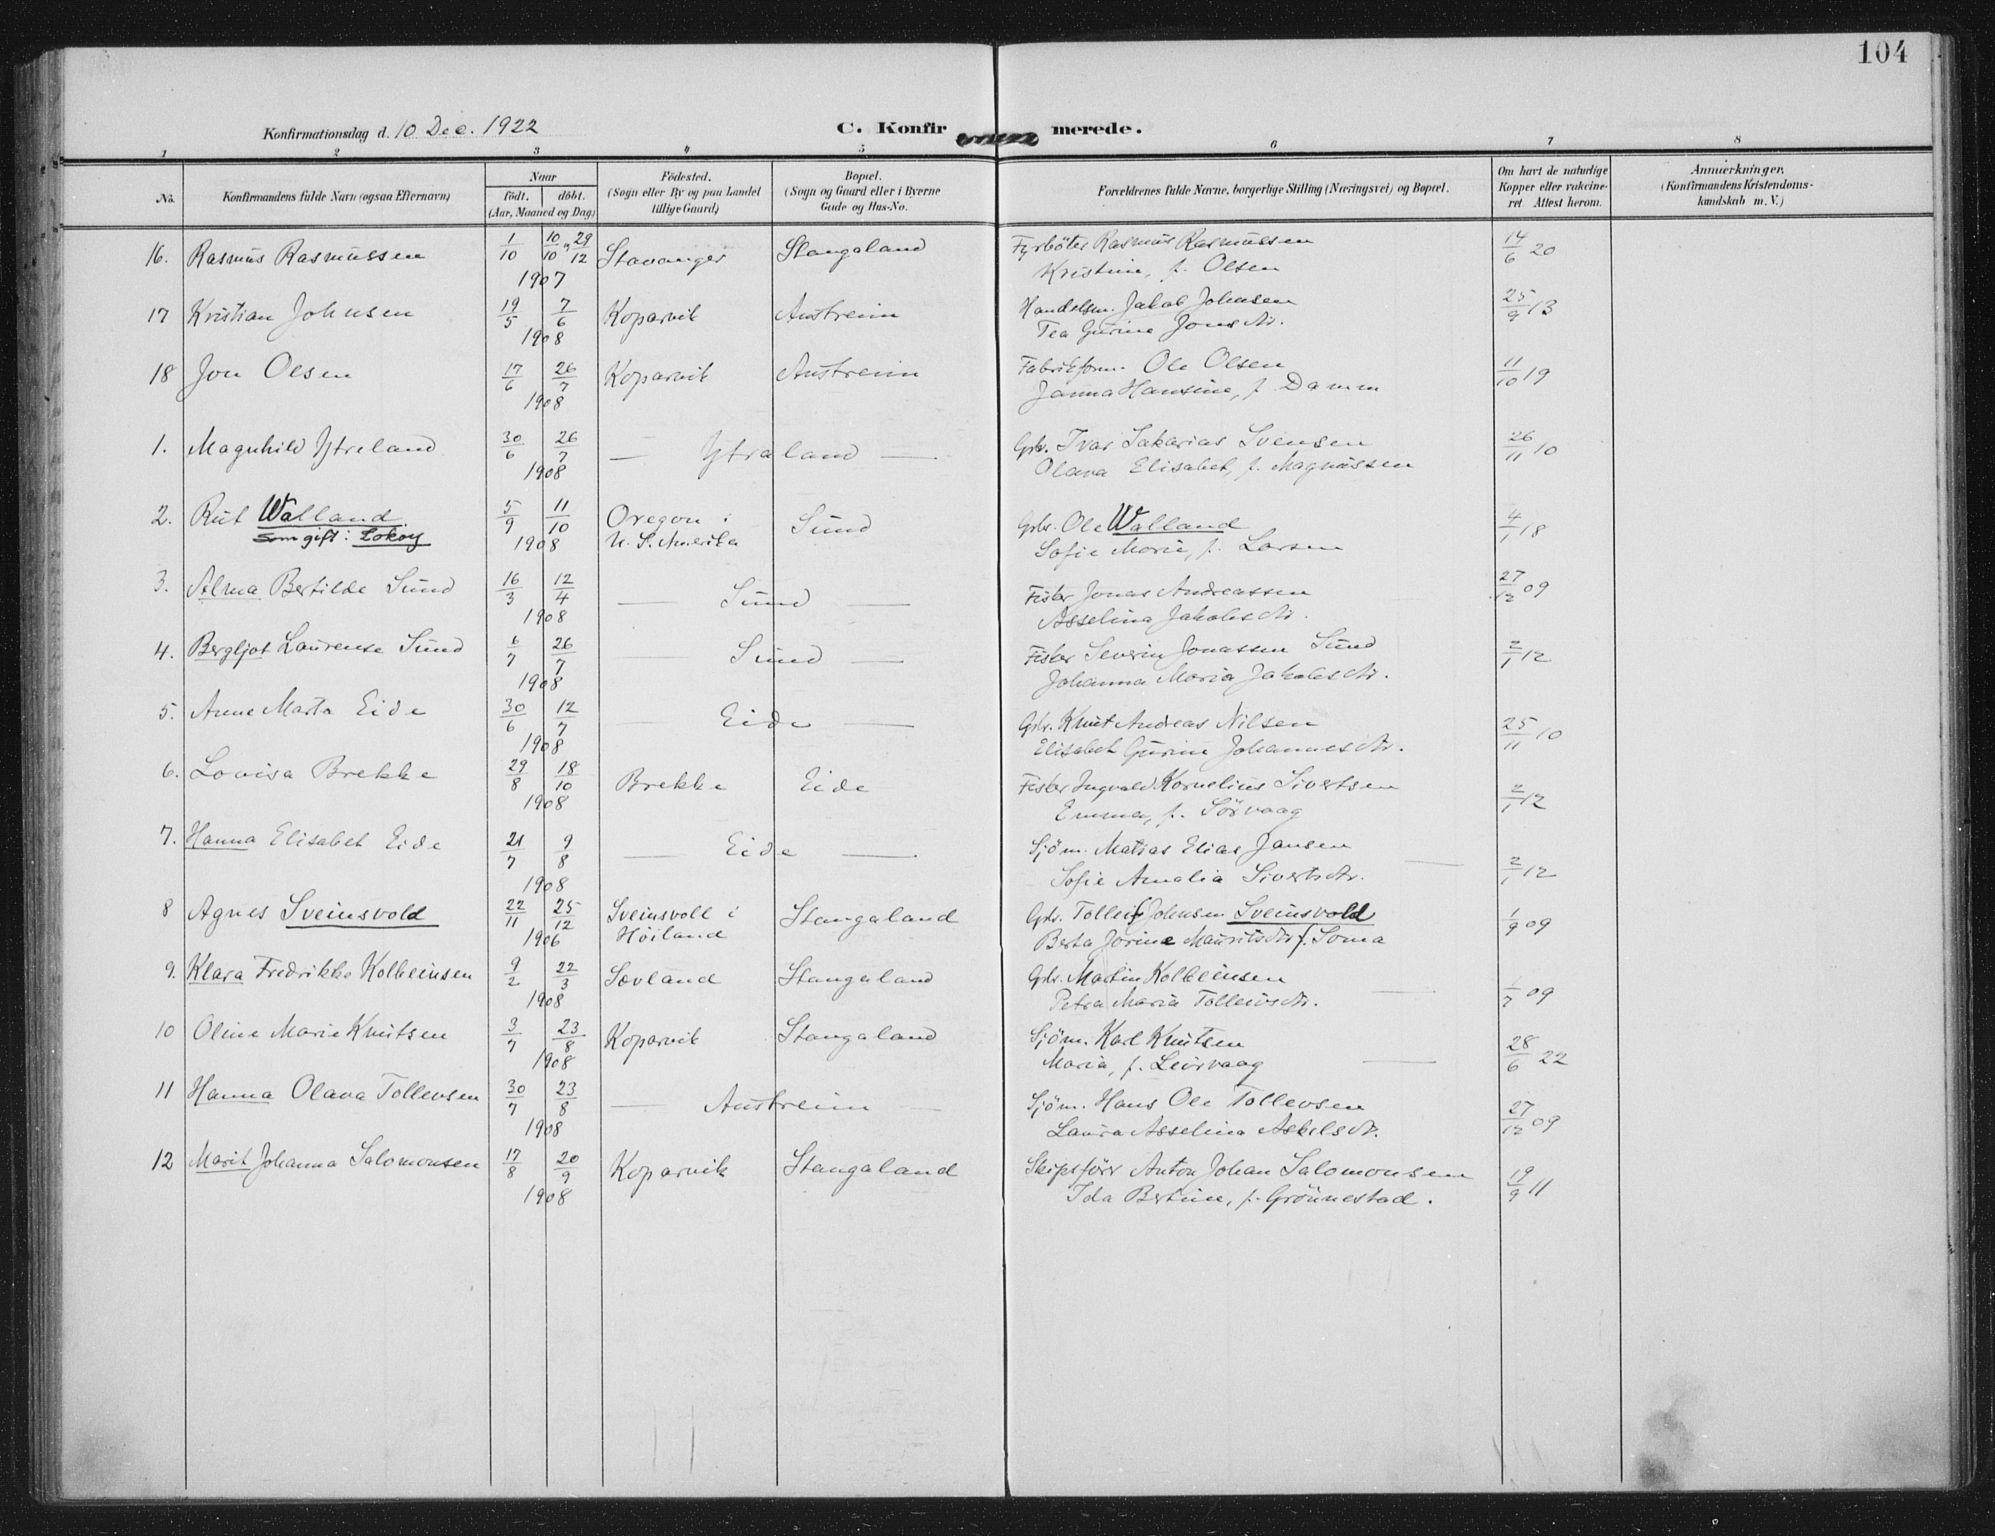 104
Konfirmationsdag d. 10 Dec. 1922
C. Konfirmerede.
1 2 3 4 5 6 7 8
No. Konfirmandens fulde Navn (ogsaa Efternavn) Naar födt. döbt. (Aar, Maaned og Dag) Födested. (Sogn eller By og paa Landet tillige Gaard) Bopæl. (Sogn og Gaard eller i Byerne Gade og Hus-No. Forældrenes fulde Navne, borgerlige Stilling (Næringsvei) og Bopæl. Om havt de naturlige Kopper eller vakcineret Attest herom. Anmærkninger. (Konfirmandens Kristendomskundskab m. V.)
16. Rasmus Rasmussen 1/10 10/10 29/12 Stavanger Stangaland Fyrböter Rasmus Rasmussen 14/6 20
1907 Kristine, f. Olsen
17 Kristian Johnsen 19/5 7/6 Koparvik Austreim Handelsm. Jakob Johnsen 25/9 13
1908 Tea Gurine Jonsdtr.
18 Jon Olsen 17/6 26/7 Koparvik Austreim Fabrikform. Ole Olsen 11/10 19
1908 Janna Hansine, f. Damm
1. Magnhild Ytreland 30/6 26/7 — Ytraland — Gbr. Ivar Sakarias Svensen 26/11 10
1908 Olava Elisabet, f. Magnussen
2. Rut Walland 5/9 11/10 Oregon i Sund Gbr. Ole Walland 4/1 18
som gift: Lokøy 1908 U. S. Amerika Sofie Marie, f. Larsen
3. Alma Bertilde Sund 16/3 12/4 — Sund — Fisker Jonas Andreassen 27/12 09
1908 Asselina Jakobsdtr.
4. Bergljot Laurense Sund 6/7 26/7 Sund — Fisker Severin Jonassen Sund 2/1 12
1908 Johanna Maria Jakobsdtr.
5. Anne Marta Eide 30/6 12/7 — Eide — Gbr. Knut Andreas Nilsen 25/11 10
1908 Elisabet Gurine Johannesdtr.
6. Lovisa Brekke 29/8 18/10 Brekke Eide Fisker Ingvald Kornelius Sivertsen 2/1 12
1908 Emma, f. Sörvaag
7. Hanna Elisabet Eide 21/7 9/8 — Eide — Sjöm. Matias Elias Jansen — 2/1 12
1908 Sofie Amalia Sivertsdtr.
8 Agnes Sveinsvold 22/11 25/12 Sveinsvoll i Stangaland Gbr. Tolleif Johnsen Sveinsvold 1/9 09
1906 Höiland Berta Jorine Mauritsdtr f. Soma
9. Klara Fredrikke Kolbeinsen 9/2 22/3 Sævland Stangaland Gbr. Martin Kolbeinsen — 1/7 09
1908 Petra Maria Tollevsdtr.
10 Oline Marie Knutsen 3/7 23/8 Koparvik Stangaland Sjöm. Karl Knutsen — 28/6 22
1908 Maria, f. Leirvaag
11 Hanna Olava Tollevsen 30/7 23/8 — Austreim — Sjöm. Hans Ole Tollevsen 27/12 09
1908 Laura Asselina Askelsdtr.
12 Marit Johanna Salomonsen 17/8 20/9 Koparvik Stangaland Skipsförer Anton Johan Salomonsen 19/9 11
1908 Ida Bertine, f. Grönnestad.